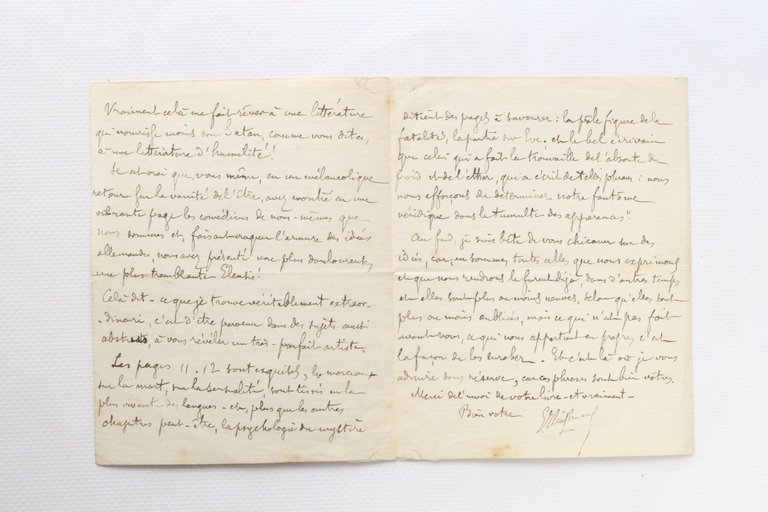 Vraiment cela me fait rêver à une littérature
qui nourrisse moins son Satan, comme vous dites,
à une littérature d'humilité!
Il est vrai que, vous même, en un mélancolique
retour sur la vanité de l'Etre, avez montré en une
vibrante page les comédiens de nous-mêmes que
nous sommes et, faisant craquer l'armure des idées
allemandes, nous avez présenté une plus douloureuse,
une plus tremblante
Celà dit - ce que je trouve véritablement extraor-
dinaire, c'est d'être parvenu dans des sujets aussi
abstraits, à vous révéler un très-parfait artiste.
Les pages 11.12 sont exquises, les morceaux
sur la mort, sur la sensualité, sont tissés en la
plus vivante des langues - et, plus que les autres
chapitres peut-être, la psychologie du mystère
détient des pages à savourer: la pâle figure de la
fatalité, la partie sur Eve. et le bel écrivain
que celui qui a fait la trouvaille de l'absoute du
froid et de l'éther, qui a écrit de telles phrases: nous
nous efforçons de déterminer notre fantôme
véridique dans le tumulte des apparences".
Au fond, je suis bête de vous chicaner sur des
idées, car, en somme, toutes celles que nous exprimons
et que nous rendrons le furent déjà, dans d'autres temps
et elles sont plus ou moins neuves, selon qu'elles sont
plus ou moins oubliées, mais ce qui n'est pas fait
avant vous, ce qui nous appartient en propre, c'est
la façon de les enrober. Et c'est là où je vous
admire sans réserve, car ces phrases sont bien vôtres.
Merci de l'envoi de votre livre - et vraiment -
Bien vôtre